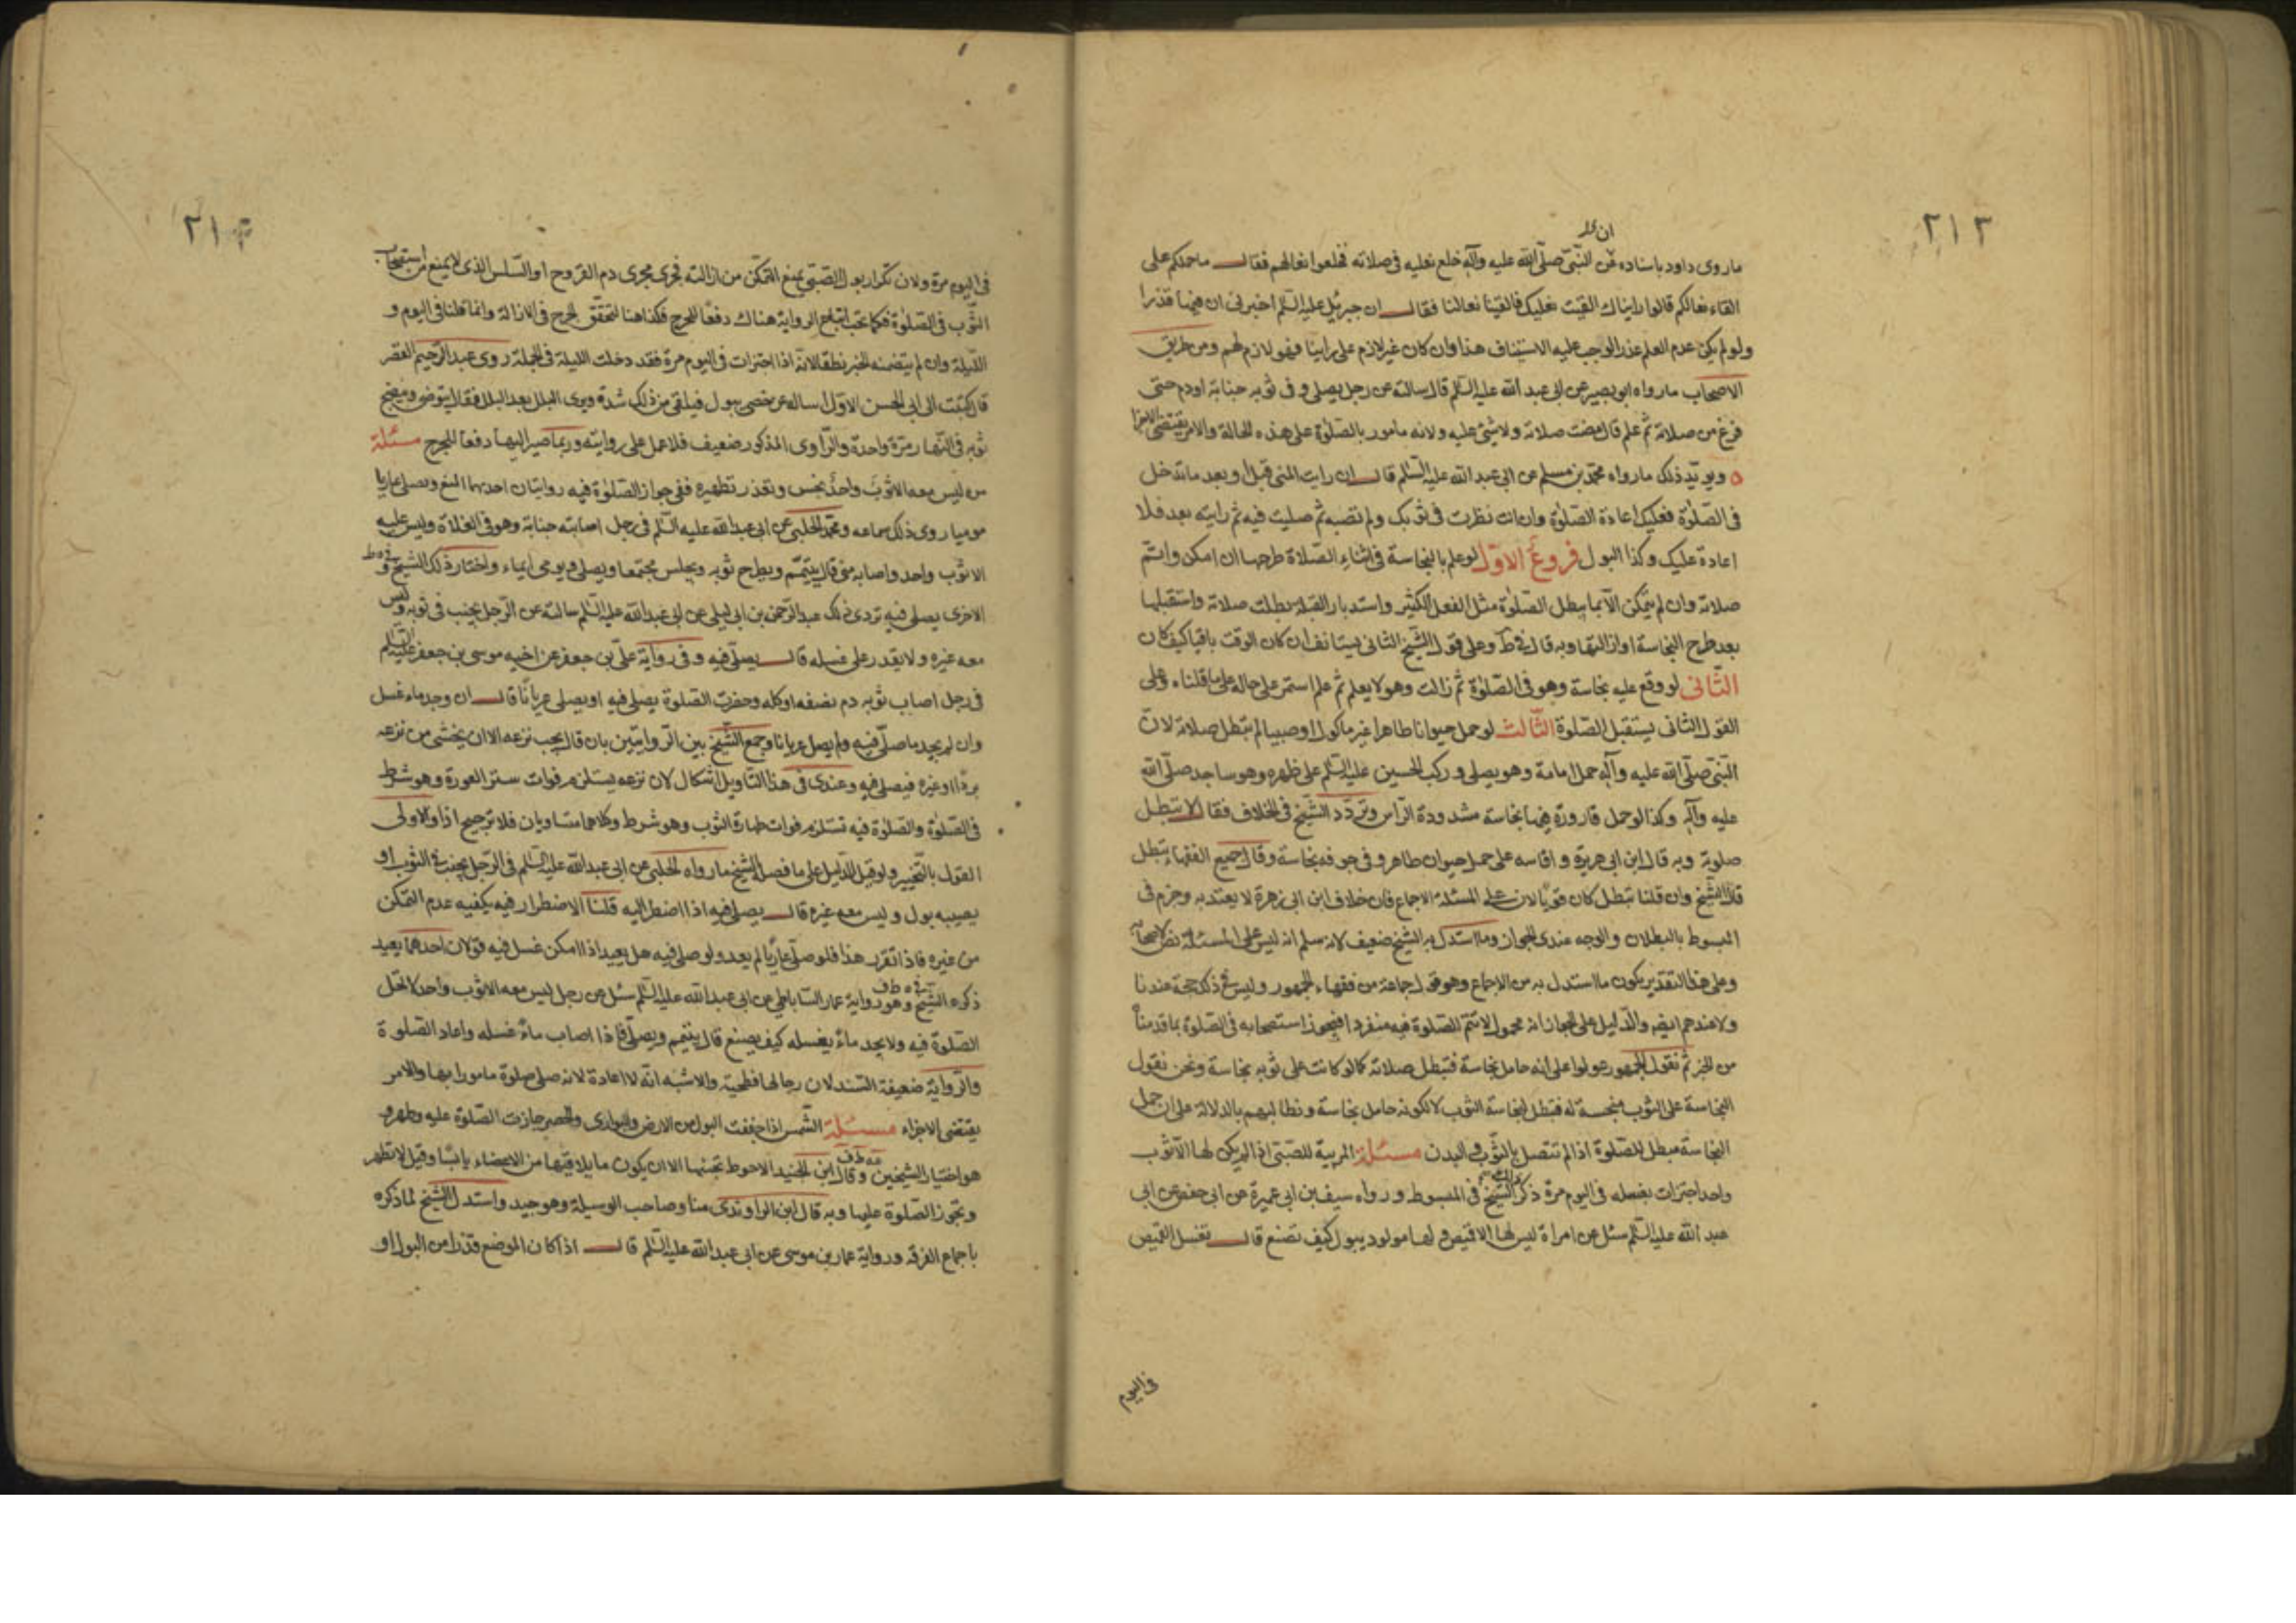 ٢١٢
ان
ما روى داود باسناده عن النبى صلى الله عليه وآله خلع نعليه فى صلاته فخلعوا نعالهم فقال ما حملكم على
القاء نعالكم قالوا رايناك القيت نعليك فالقينا نعالنا فقال ان جبرئيل عليه السلم اخبرنى ان فيهما قذرا
ولو لم يكن عدم العلم عذرا لوجب عليه الاستيناف هذا وان كان غير لازم على راينا فهو لازم لهم ومن طريق
الاصحاب ما رواه ابو بصير عن ابى عبد الله عليه السلم قال سالته عن رجل يصلى و فى ثوبه جنابة او دم حتى
فرغ من صلاته ثم علم قال مضت صلاته ولا شئ عليه ولانه مامور بالصلوة على هذه الحالة والامر يقتضى الاجزا
ه ويؤيد ذلك ما رواه محمد بن مسلم عن ابى عبد الله عليه السلم قال ان رايت المنى قبل او بعد ما تدخل
فى الصلوة فعليك اعادة الصلوة وان انت نظرت فى ثوبك ولم تصبه ثم صليت فيه ثم رايته بعد فلا
اعادة عليك وكذا البول فروع الاول لو علم بالنجاسة فى اثناء الصلاة طرحها ان امكن واتم
صلاته وان لم يتمكن الا بما يبطل الصلوة مثل الفعل الكثير واستدبار القبلة بطلت صلاته واستقبلها
بعد طرح النجاسة او ازالتها وبه قال فى ط وعلى قول الشيخ الثانى يستانف ان كان الوقت باقيا كيف كان
الثانى لو وقع عليه نجاسة وهو فى الصلوة ثم زالت وهو لا يعلم ثم علم استمر على حاله على ما قلناه وعلى
القول الثانى يستقبل الصلوة الثالث لو حمل حيوانا طاهرا غير ماكول او صبيا لم تبطل صلاته لان
النبى صلى الله عليه وآله حمل امامة وهو يصلى و ركب الحسين عليه السلم على ظهره وهو ساجد صلى الله
عليه وآله وكذا لو حمل قارورة فيها نجاسة مشدودة الراس وتردد الشيخ فى الخلاف فقال لا تبطل
صلوته وبه قال ابن ابى هريرة و اقاسه على حمل حيوان طاهر و فى جوفه نجاسة وقال جميع الفقهاء تبطل
قال الشيخ وان قلنا تبطل كان قويا لان على المسئلة الاجماع فان خلاف ابن ابى هريرة لا يعتد به وجزم فى
المبسوط بالبطلان والوجه عندى الجواز وما استدل به الشيخ ضعيف لانه سلم انه ليس على المسئلة نص لاصحابه
وعلى هذا التقدير يكون ما استدل به من الاجماع وهو قول جماعة من فقهاء الجمهور وليس فى ذلك حجة عندنا
ولا عندهم ايضا والدليل على الجواز انه محمول لا تتم الصلوة فيه منفردا فيجوز استصحابه فى الصلوة بما قدمنا
من الخبر ثم نقول الجمهور عولوا على انه حامل نجاسة فتبطل صلاته كما لو كانت على ثوبه نجاسة ونحن نقول
النجاسة على الثوب منجسة له فتبطل لنجاسة الثوب لا لكونه حامل نجاسة ونطالبهم بالدلالة على ان حمل
النجاسة مبطل للصلوة اذا لم تتصل بالثوب والبدن مسئلة المربية للصبى اذا لم يكن لها الا ثوب
واحد اجتزات بغسله فى اليوم مرة ذكره الشيخ فى المبسوط و رواه سيف بن ابى عميرة عن ابى حفص عن ابى
عبد الله عليه السلم سئل عن امراة ليس لها الا قميص و لها مولود يبول كيف تصنع قال تغسل القميص
فى اليوم
٢١٣
فى اليوم مرة ولان تكرار بول الصبى يمنع التمكن من ازالته فجرى مجرى دم القروح او السلس الذى لا يمنع من استصحاب
الثوب فى الصلوة فكما يجب اتباع الرواية هناك دفعا للحرج فكذا هنا لتحقق الحرج فى الازالة وانما قلنا فى اليوم و
الليلة وان لم يتضمنه الخبر نطقا لانه اذا اجتزات فى اليوم مرة فقد دخلت الليلة فى الجملة روى عبد الرحيم القصر
قال كتبت الى ابى الحسن الاول اساله عن خصى يبول فيلقى من ذلك شدة ويرى البلل بعد البلل فقال يتوضى وينضح
ثوبه فى النهار مرة واحدة والراوى المذكور ضعيف فلا عمل على روايته وربما صير اليها دفعا للحرج مسئلة
من ليس معه الا ثوب واحد نجس وتعذر تطهيره ففى جواز الصلوة فيه روايتان احديهما المنع ويصلى عاريا
موميا روى ذلك سماعه ومحمد الحلبى عن ابى عبد الله عليه السلم فى رجل اصابته جنابة وهو فى الفلاة وليس عليه
الا ثوب واحد واصابه منى قال يتيمم ويطرح ثوبه ويجلس مجتمعا ويصلى ويومى ايماء واختار ذلك الشيخ فى ط
الاخرى يصلى فيه روى ذلك عبد الرحمن بن ابى ليلى عن ابى عبد الله عليه السلم سالته عن الرجل يجنب فى ثوبه وليس
معه غيره ولا يقدر على غسله قال يصلى فيه و فى رواية على بن جعفر عن اخيه موسى بن جعفر عليه السلم
فى رجل اصاب ثوبه دم نصفه او كله وحضرت الصلوة يصلى فيه او يصلى عريانا قال ان وجد ماء غسل
وان لم يجد ما صلى فيه ولم يصل عريانا وجمع الشيخ بين الروايتين بان قال يجب نزعه الا ان يخشى من نزعه
بردا او غيره فيصلى فيه وعندى فى هذا التاويل اشكال لان نزعه يستلزم فوات ستر العورة وهو شرط
فى الصلوة والصلوة فيه تستلزم فوات طهارة الثوب وهو شرط وكلاهما متساويان فلا ترجيح اذا والاولى
القول بالتخيير ولو قيل الدليل على ما فصله الشيخ ما رواه الحلبى عن ابى عبد الله عليه السلم فى الرجل يجنب فى الثوب او
يصيبه بول و ليس معه غيره قال يصلى فيه اذا اضطر اليه قلنا الاضطرار فيه يكفيه عدم التمكن
من غيره فاذا تقرر هذا فلو صلى عاريا لم يعد ولو صلى فيه هل يعيد اذا امكن غسل فيه قولان احدهما يعيد
ذكره الشيخ فى ط وهو رواية عمار الساباطى عن ابى عبد الله عليه السلم سئل عن رجل ليس معه الا ثوب واحد لا تحل
الصلوة فيه ولا يجد ماء يغسله كيف يصنع قال يتيمم ويصلى فاذا اصاب ماء غسله واعاد الصلوة
والرواية ضعيفة السند لان رجالها فطحية والاشبه انه لا اعادة لانه صلى صلوة مامورا بها والامر
يقتضى الاجزاء مسئلة الشمس اذا جففت البول من الارض والبوارى والحصر جازت الصلوة عليه وطهر و
هو اختيار الشيخين وقال ابن الجنيد الاحوط تجنبها الا ان يكون ما يلاقيها من الاعضاء يابسا وقيل لا تطهر
وتجوز الصلوة عليها وبه قال ابن الراوندى منا وصاحب الوسيلة وهو جيد واستدل الشيخ لما ذكره
باجماع الفرقة ورواية عمار بن موسى عن ابى عبد الله عليه السلم قال اذا كان الموضع قذرا من البول او